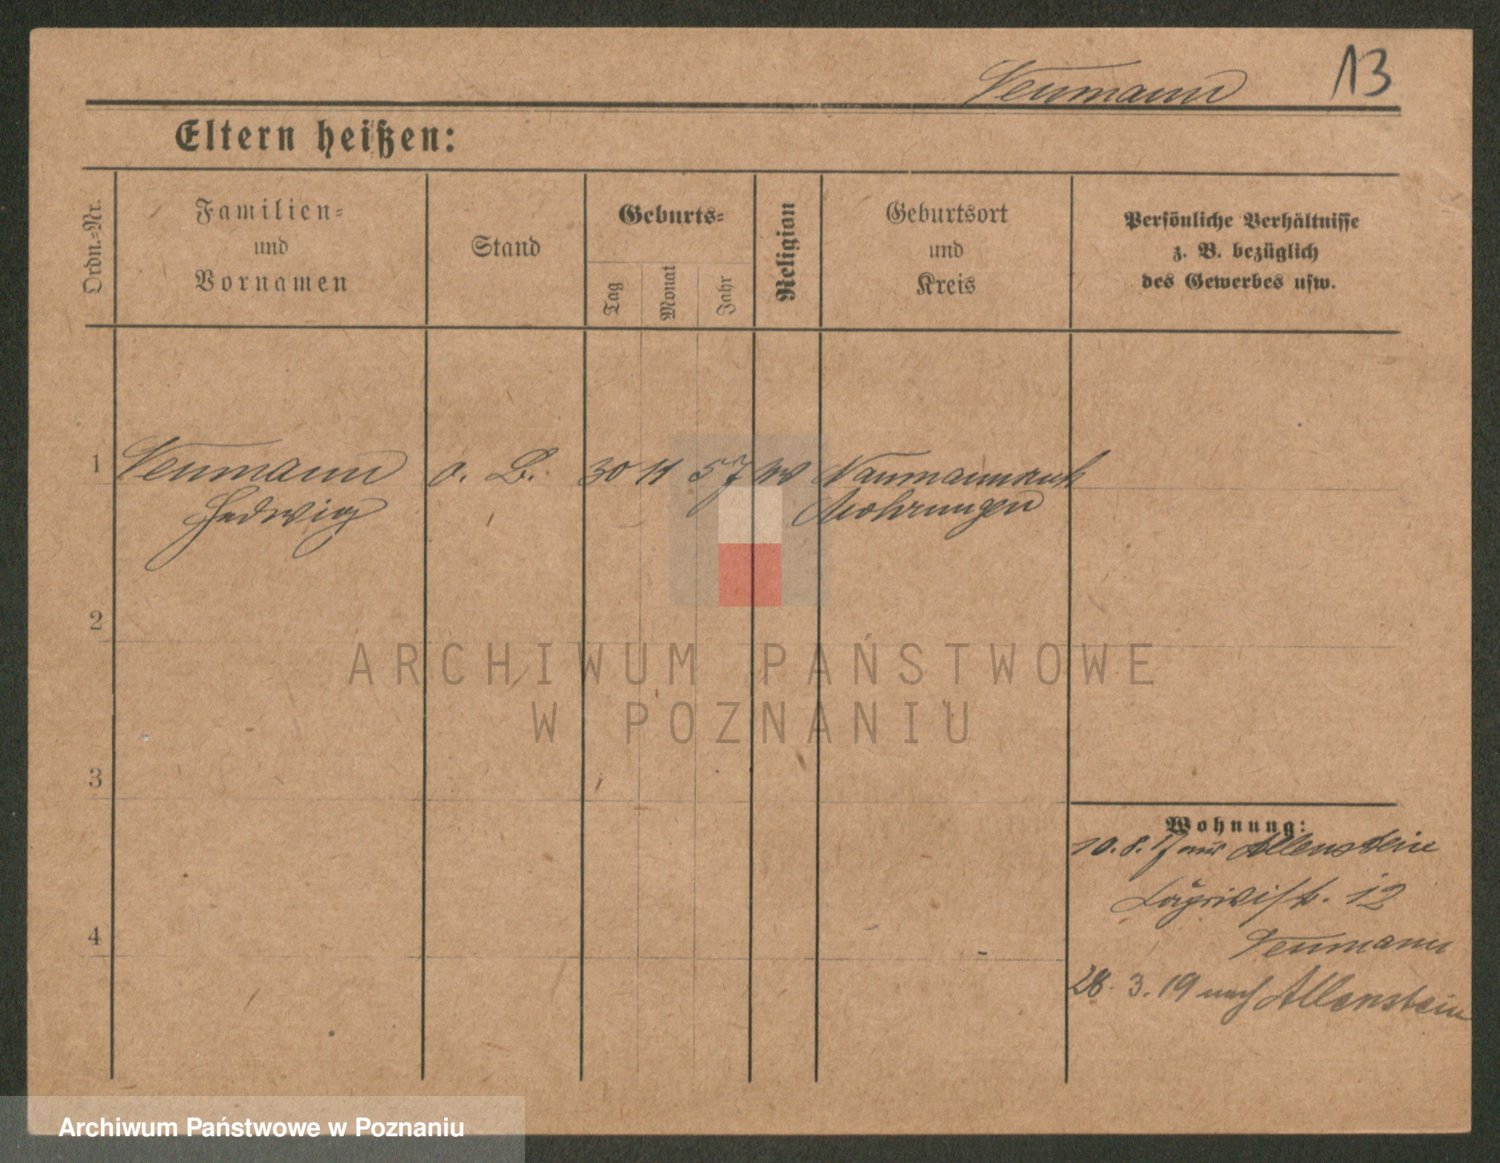 Neumann 13
Eltern heißen:
Ordn.-Nr.
Familien-
und
Vornamen
Stand
Geburts-
Tag
Monat
Jahr
Religion
Geburtsort
und
Kreis
Persönliche Verhältnisse
z. B. bezüglich
des Gewerbes usw.
1 Neumann o. B. 30 11 57
Hedwig Mohrungen
2
3
4
Wohnung:
10. 8. 17 aus Allenstein
12
Neumann
28. 3. 19 nach Allenstein
ARCHIWUM PAŃSTWOWE
W POZNANIU
Archiwum Państwowe w Poznaniu